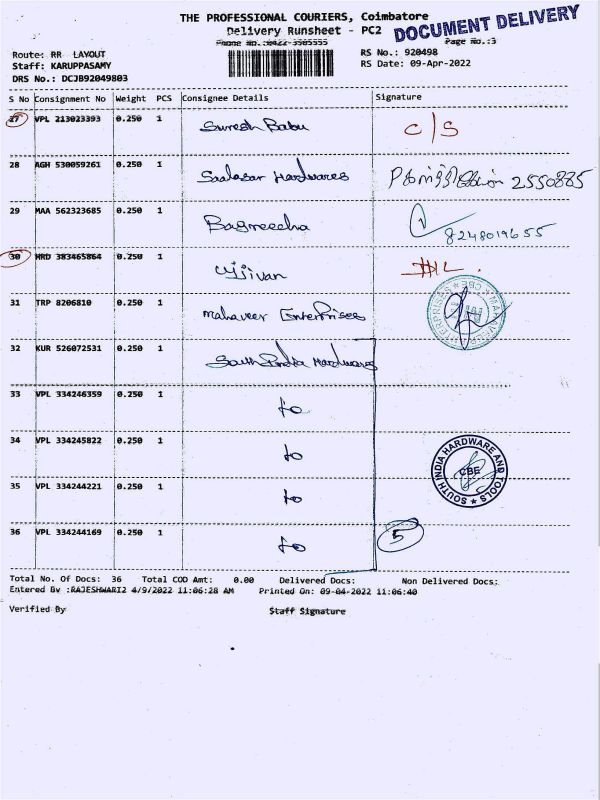 THE PROFESSIONAL COURIERS, Coimbatore
Delivery Runsheet - PC2
DOCUMENT DELIVERY
Phone No.:0422-3505555
Page No.:3
Route: RR LAYOUT
RS No.: 920498
Staff: KARUPPASAMY
RS Date: 09-Apr-2022
DRS No.: DCJB92049803
S No Consignment No Weight PCS Consignee Details Signature
27 VPL 213023393 0.250 1 Suresh Babu C/S
28 AGH 530059261 0.250 1 Saalasar Hardwares 2550885
29 MAA 562323685 0.250 1 Bagreecha 8248019655
30 HRD 383465864 0.250 1 Ujjivan
31 TRP 8206810 0.250 1 Mahaveer Enterprises MAHAVEER ENTERPRISES CBE
32 KUR 526072531 0.250 1 South India Hardwares
33 VPL 334246359 0.250 1 to
34 VPL 334245822 0.250 1 to
SOUTH INDIA HARDWARE AND TOOLS CBE
35 VPL 334244221 0.250 1 to
36 VPL 334244169 0.250 1 to 5
Total No. Of Docs: 36 Total COD Amt: 0.00 Delivered Docs: Non Delivered Docs:
Entered By :RAJESHWARI2 4/9/2022 11:06:28 AM Printed On: 09-04-2022 11:06:40
Verified By Staff Signature